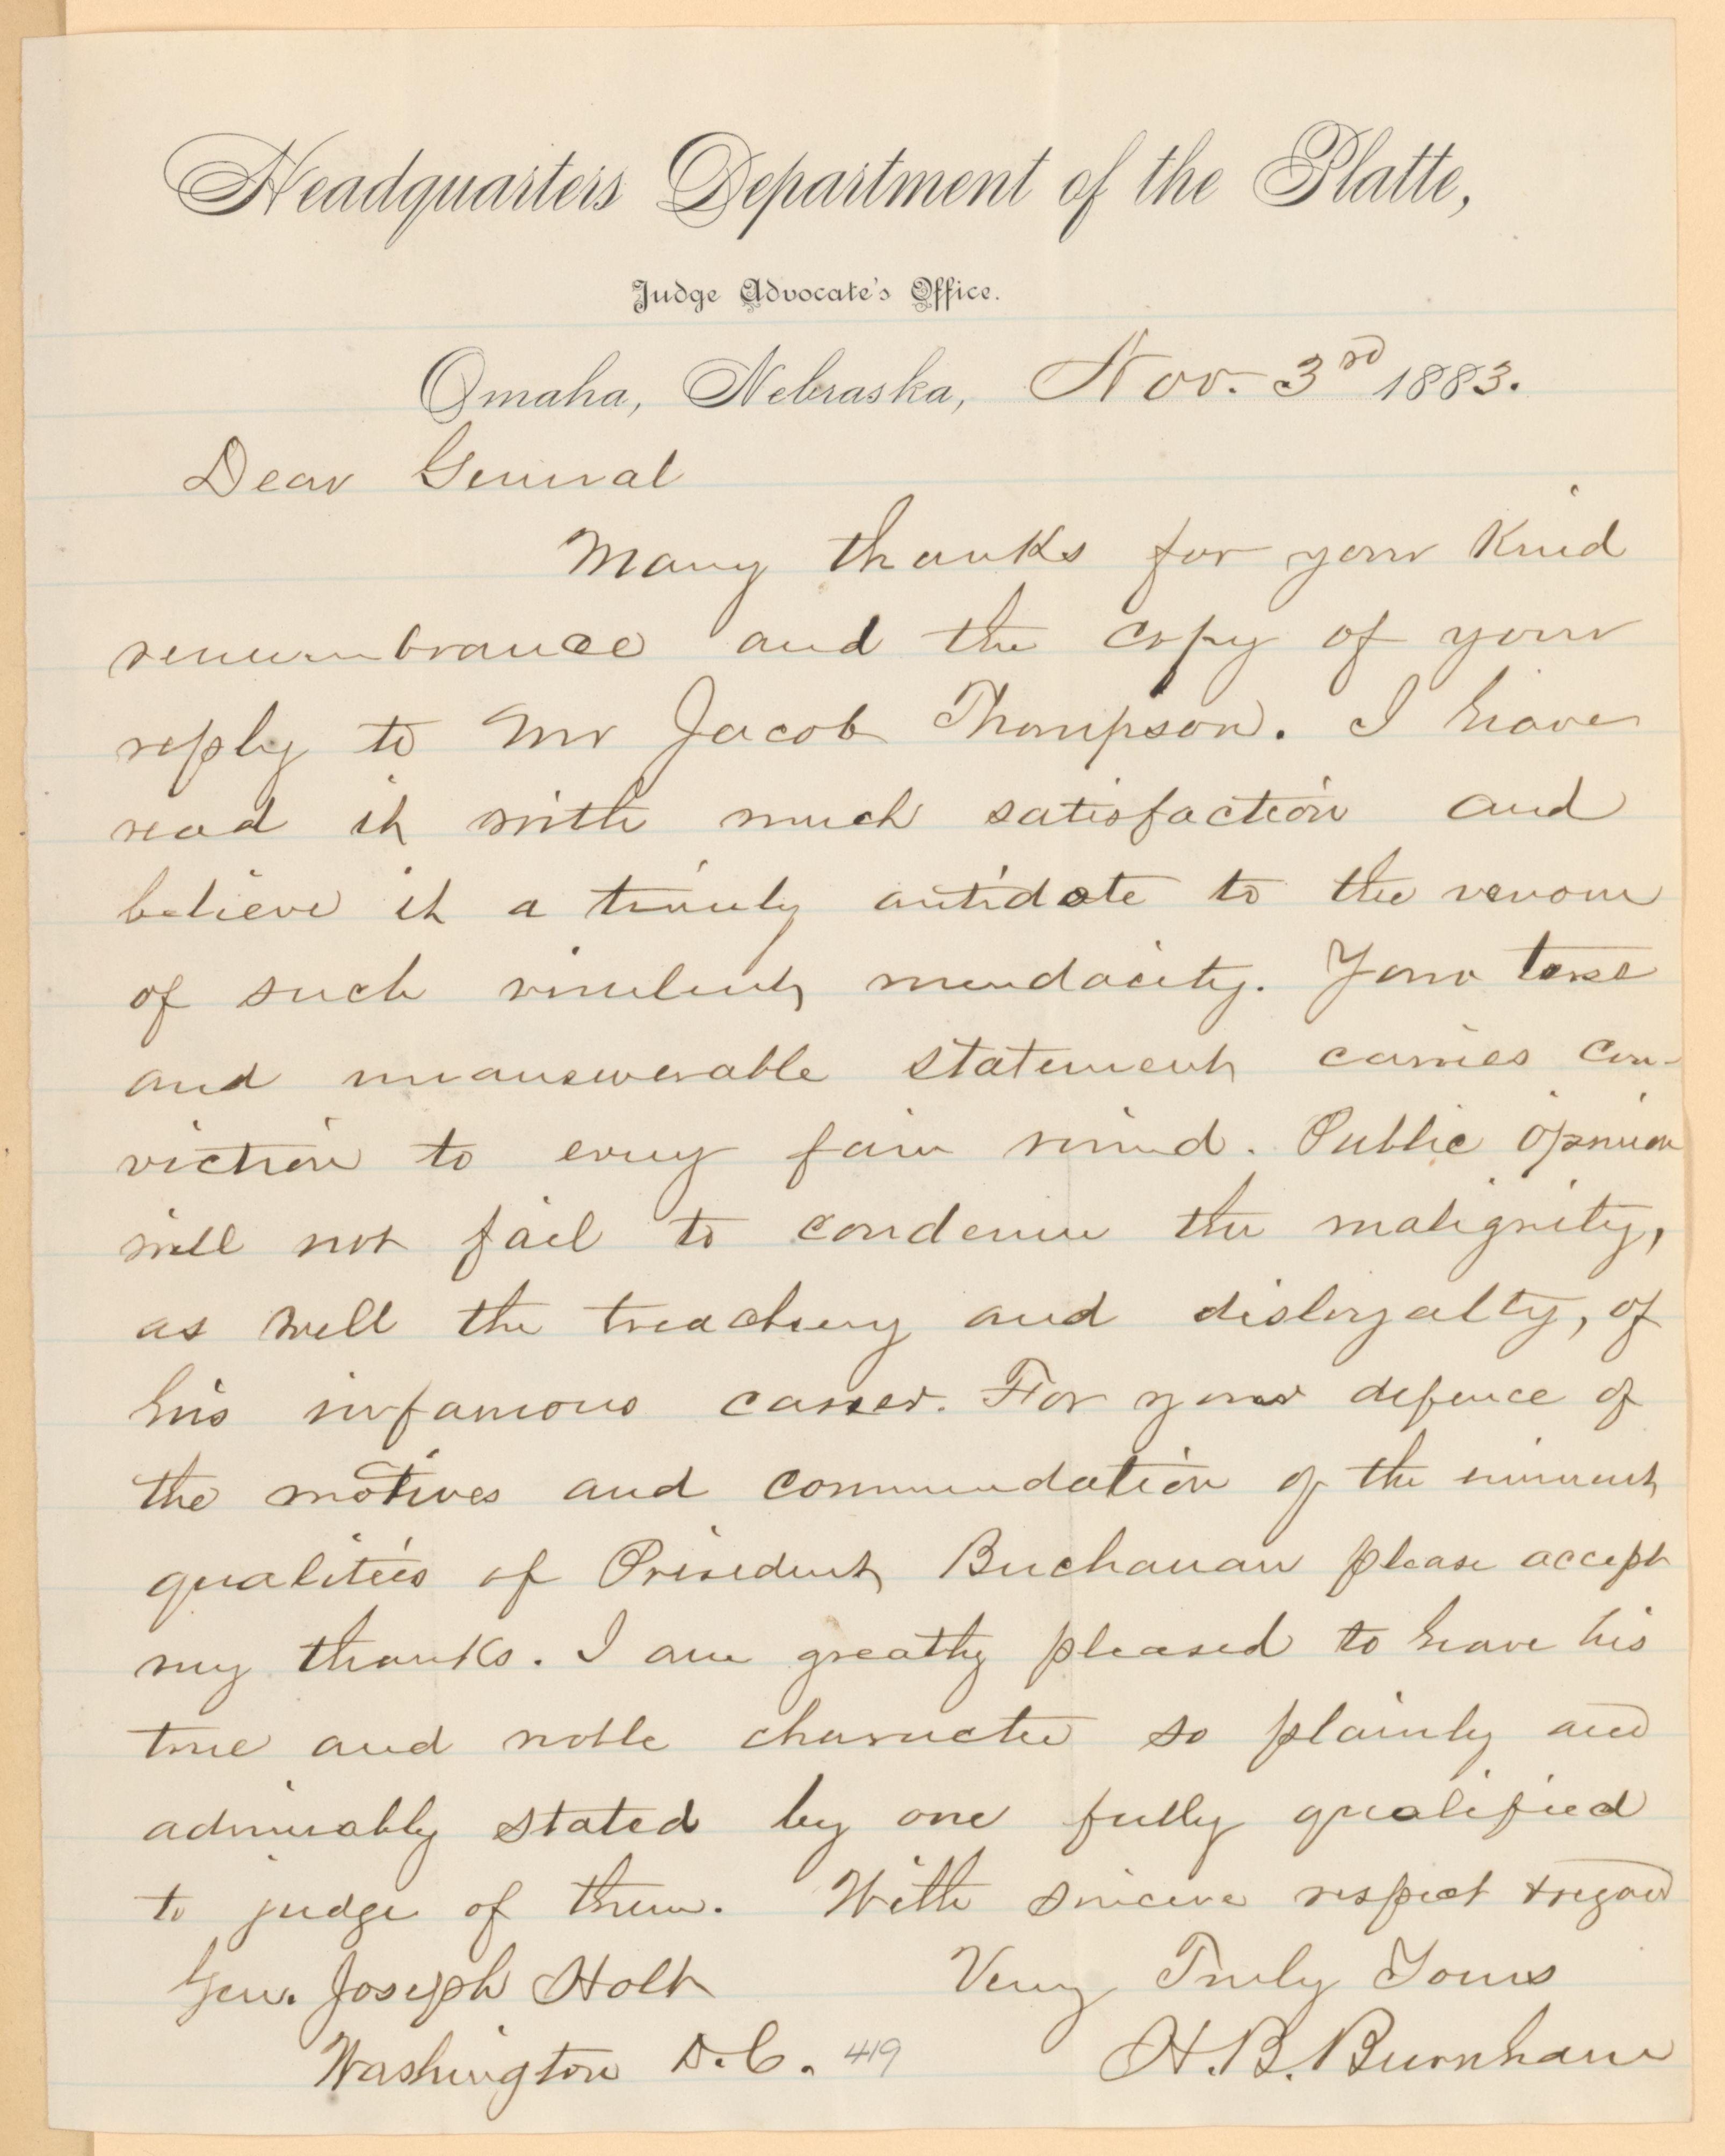 Headquarters Department of the Platte,
Judge Advocate's Office.
Omaha, Nebraska, Nov. 3rd 1883.
Dear General
Many thanks for your kind
remembrance and the copy of your
reply to Mr Jacob Thompson. I have
read it with much satisfaction and
believe it a timely antidote to the venom
of such virulent mendacity. Your terse
and unanswerable statement carries con-
viction to every fair mind. Public opinion
will not fail to condemn the malignity,
as well the treachery and disloyalty, of
his infamous career. For your defence of
the motives and commendation of the eminent
qualities of President Buchanan please accept
my thanks. I am greatly pleased to have his
true and noble character so plainly and
admirably stated by one fully qualified
to judge of them. With sincere respect & regard
Very Truly Yours
H. B. Burnham
Gen. Joseph Holt
Washington D.C. 419